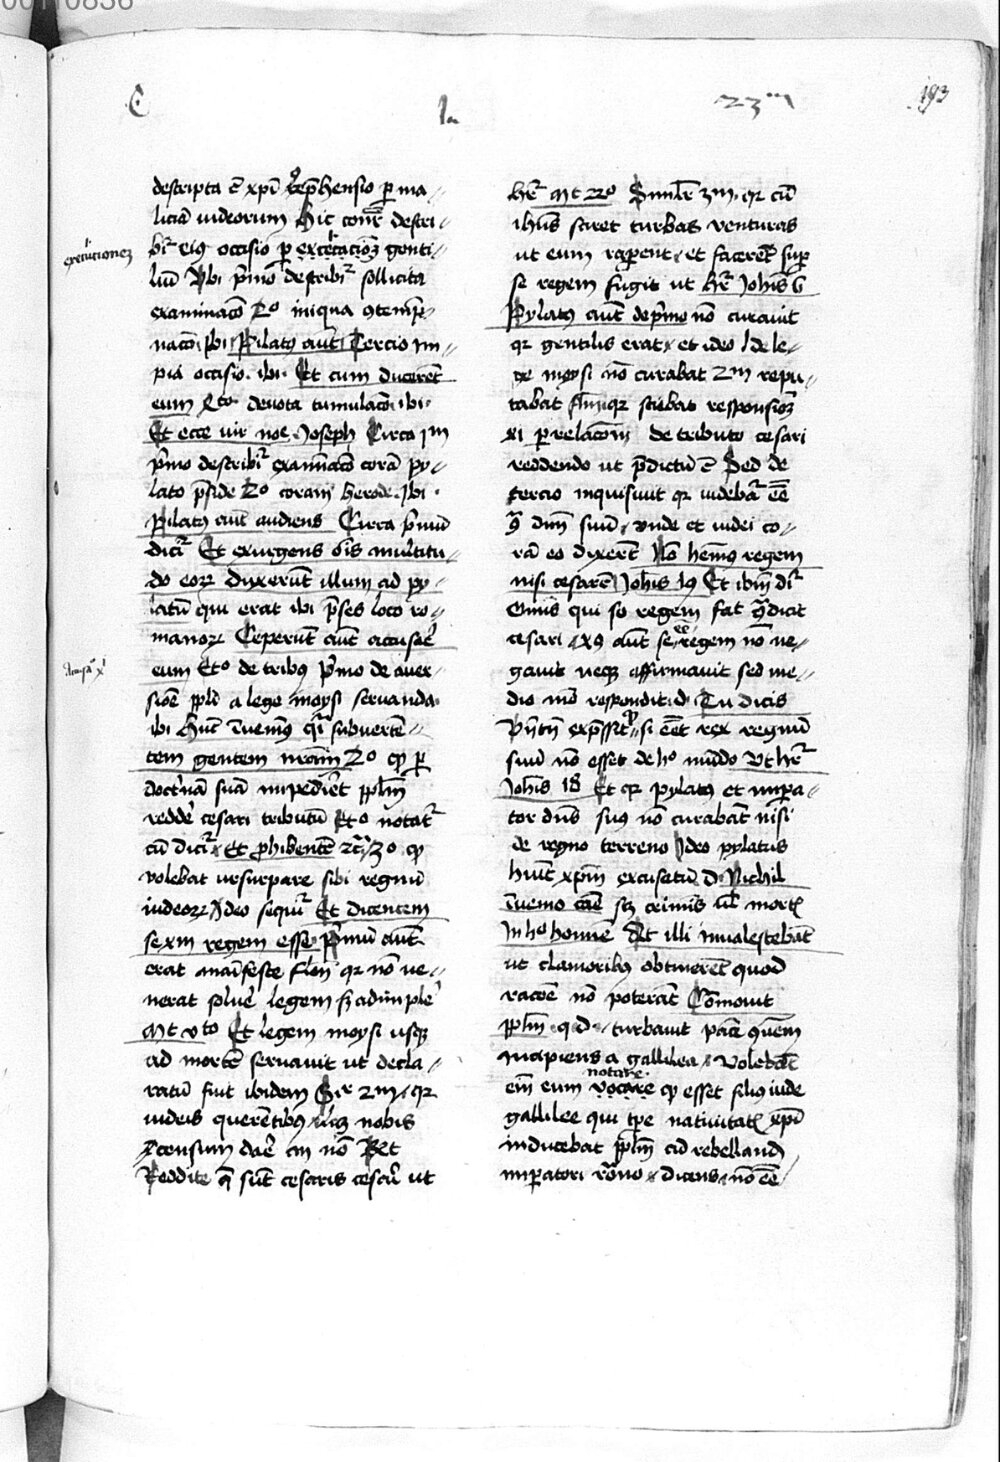 C
la
23m
193
descripta ē xp̄i cōp̄hensio per ma-
liciā iudeorum Hic conr̄ descri-
bit᷑ eiꝰ occisio ꝑ excecacōeꝫ genti-
executionez
liū Vbi p̄mo describit᷑ sollicita
examinacō 2o iniqua ꝯtemp-
nacō ibi Pilatꝰ aūt Tercio im-
pia occisio ibi Et cum ducerēt
eum 4to deuota tumulacō ibi
Et ecce uir noīe Joseph Circa jm
p̄mo describit᷑ examinacō corā py-
lato p̄side 2o coram herode Ibi
Pilatꝰ aūt audiens Circa p̄mū
dicit᷑ Et exurgens ōis multitu-
do eorꝝ duxerūt illum ad py-
latū qui erat ibi p̄ses loco ro-
manorꝝ Ceperūt aūt accusaē
eum Eto de tribus p̄mo de auer-
sioē ppl̄i a lege moysi seruanda
ibi Hūc īuenimꝰ q̄ subuertē-
tem gentem nr̄am 2o ꝙ ꝑ
doct̄nā suā impedir̄et ppl̄m
redde᷑ cesari tributū Et o notat᷑
cū dicit᷑ Et ꝓhibentē 2c̄ 3o ꝙ
volebat ursurpare sibi regnū
iudeorꝝ Ideo sequit᷑ Et dicentem
se xm regem esse P̄mū aūt
erat manifeste fl̄m qr nō ue-
nerat solue᷑ legem sꝫ adimple᷑
Mt vto Et legem moysi usqꝫ
ad mortē seruauit ut decla-
ratū fuit ibidem Sīr 2m qr
iudeis querētibꝰ licꝫ nobis
censum dare an nō Rt
Reddite q̄ sūt cesaris cesari ut
hr̄ Mt 22o Simlr̄ 3m qr cū
ihūs sciret turbas venturas
ut eum raperent et facerēt suꝑ
se regem fugit ut hr̄ Johīs 6
Pylatꝰ aūt de p̄mo nō curauit
qr gentilis erat et ideo de le-
ge moysi nō curabat 2m repu-
tabat fl̄m qr sciebat responsioꝫ
xi ꝑ relacōm de tributo cesari
reddendo ut p̄dictū ē Sed de
tercio inquisiuit qr uidebat᷑ eē
ꝯ dn̄m suū unde et iudei co-
rā eo dixerūt Nō hem̄ꝰ regem
nisi cesarē Johīs 19 Et ibīm dr̄
Omīs qui se regem fac̄ ꝯdicit
cesari Xꝰ aūt se eē regem nō ne-
gauit neqꝫ affirmauit sed me-
dio mō respondit d Tu dicis
si eēt rex regnū
suū nō esset de ho mūdo Vt hr̄
Johīs 18 Et qr pylatꝰ et impa-
tor dn̄s suꝰ nō curabāt nisi
de regno terreno Ideo pylatus
hūc xpm̄ excusatū d Nichil
īuenio cāe sꝫ criminis ul̄ mort
In ho hoīne At illi inualescebāt
ut clamoribꝰ obtinerēt quod
racōe nō poterāt Cōmouit
ppl̄m q d turbauit pacē
incipiens a gallilea Volebāt
notare
eī eum vocare ꝙ esset filiꝰ iude
gallilee qui tp̄e natiuitatꝭ xp̄i
inducebat ppl̄m ad rebelland
imperatori rōno dicens nō eē